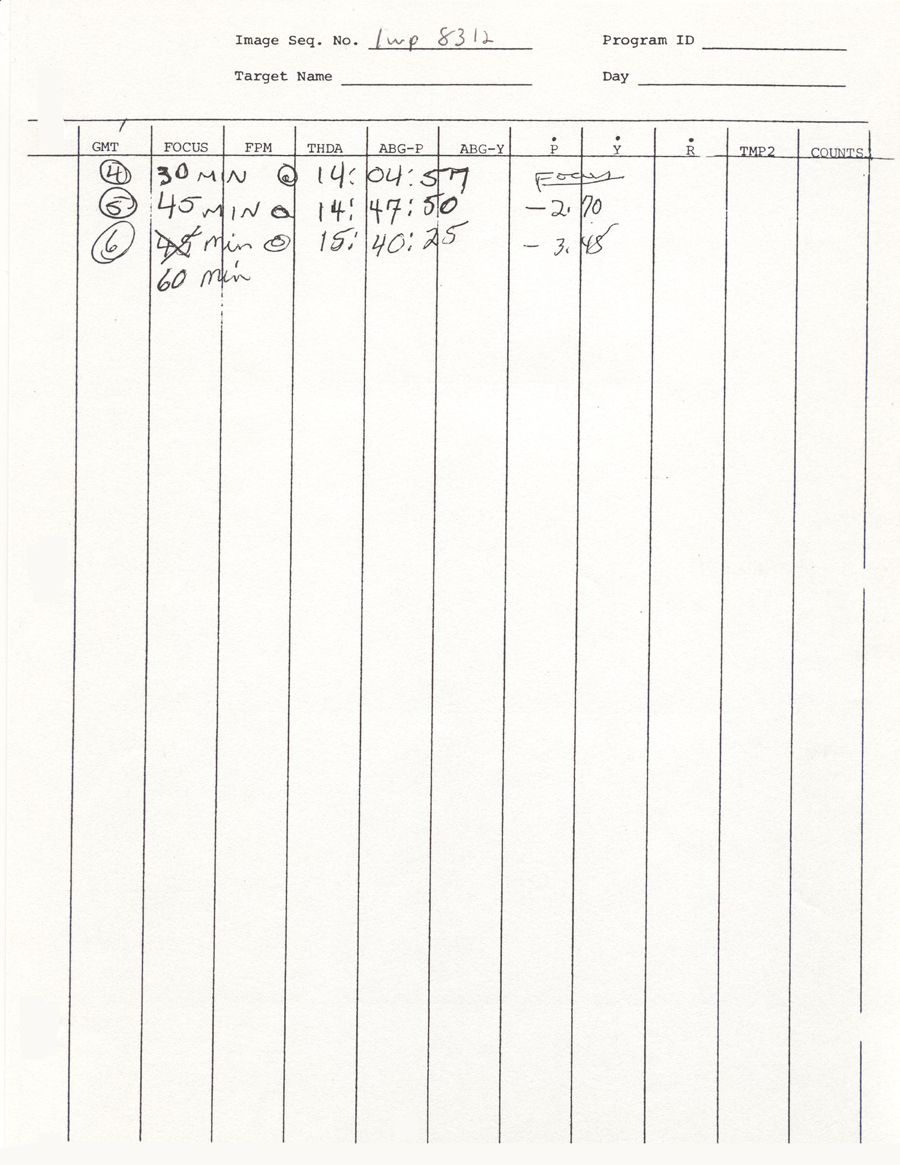 Image Seq. No. lwp 8312 Program ID
Target Name Day
GMT FOCUS FPM THDA ABG-P ABG-Y Ṗ Ẏ Ṙ TMP2 COUNTS
④ 30 MIN @ 14:04:57 Focus
⑤ 45 MIN @ 14:47:50 -2.70
⑥ 45 min @ 15:40:25 -3.48
60 min